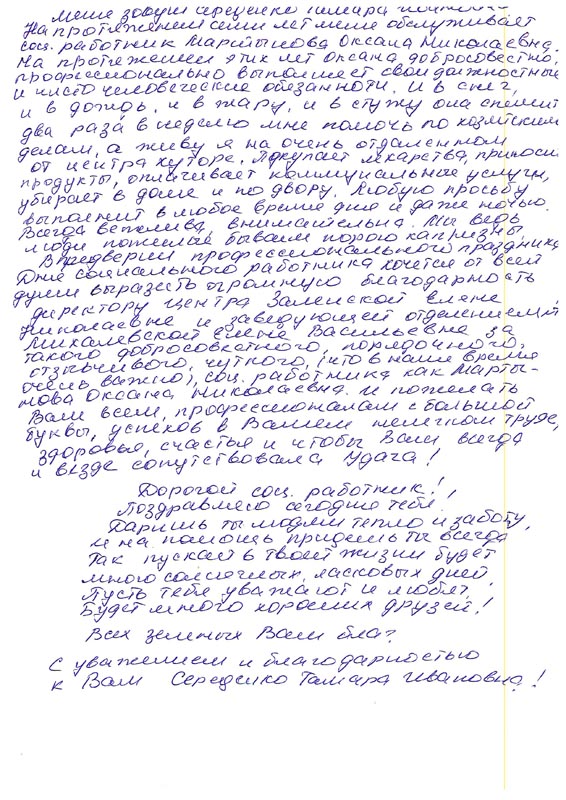 Меня зовут Середенко Тамара
На протяжении семи лет меня обслуживает
соц. работник Мартынова Оксана Николаевна.
На протяжении этих лет Оксана добросовестно,
профессионально выполняет свои должностные
и чисто человеческие обязанноти. И в снег,
и в дождь, и в жару, и в стужу она спешит
два раза в неделю мне помочь по хозяйским
делам, а живу я на очень отдаленном
от центра хуторе. Покупает лекарства, приносит
продукты, оплачивает коммунальные услуги,
убирает в доме и по двору. Любую просьбу
выполнит в любое время дня и даже ночью.
Всегда вежлива, внимательна. Мы ведь
люди пожилые бываем порою капризны.
В преддверии профессионального праздника
Дня социального работника хочется от всей
души выразить огромную благодарность
директору центра Заленской Елене
Николаевне и заведующей отделением
Михалевской Елена Васильевне за
такого добросовестного, порядочного,
отзывчивого, чуткого, (что в наше время
очень важно), соц. работника как Марты-
нова Оксана Николаевна. И пожелать
Вам всем, профессионалам с большой
буквы, успехов в Вашем нелегком труде,
здоровья, счастья и чтобы Вам всегда
и везде сопутствовала Удача!
Дорогой соц. работник!,
Поздравляю сегодня тебя.
Даришь ты людям тепло и заботу,
И на помощь придешь ты всегда
Так пускай в твоей жизни будет
много солнечных, ласковых дней.
Пусть тебя уважают и любят,
Будет много хороших друзей!
Всех земных Вам благ
С уважением и благодарностью
к Вам Середенко Тамара Ивановна!